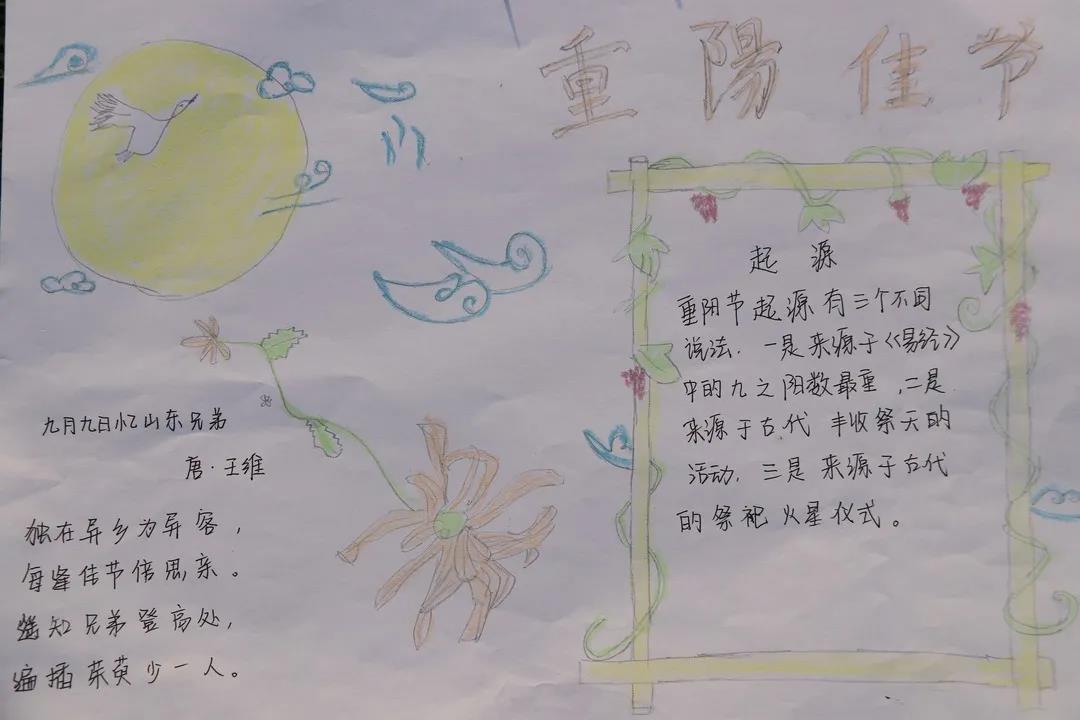 重陽佳节
起源
重阳节起源有三个不同
说法.一是来源于《易经》
中的九之阳数最重,二是
来源于古代丰收祭天的
活动,三是来源于古代
的祭祀火星仪式。
九月九日忆山东兄弟
唐·王维
独在异乡为异客,
每逢佳节倍思亲。
遥知兄弟登高处,
遍插茱萸少一人。